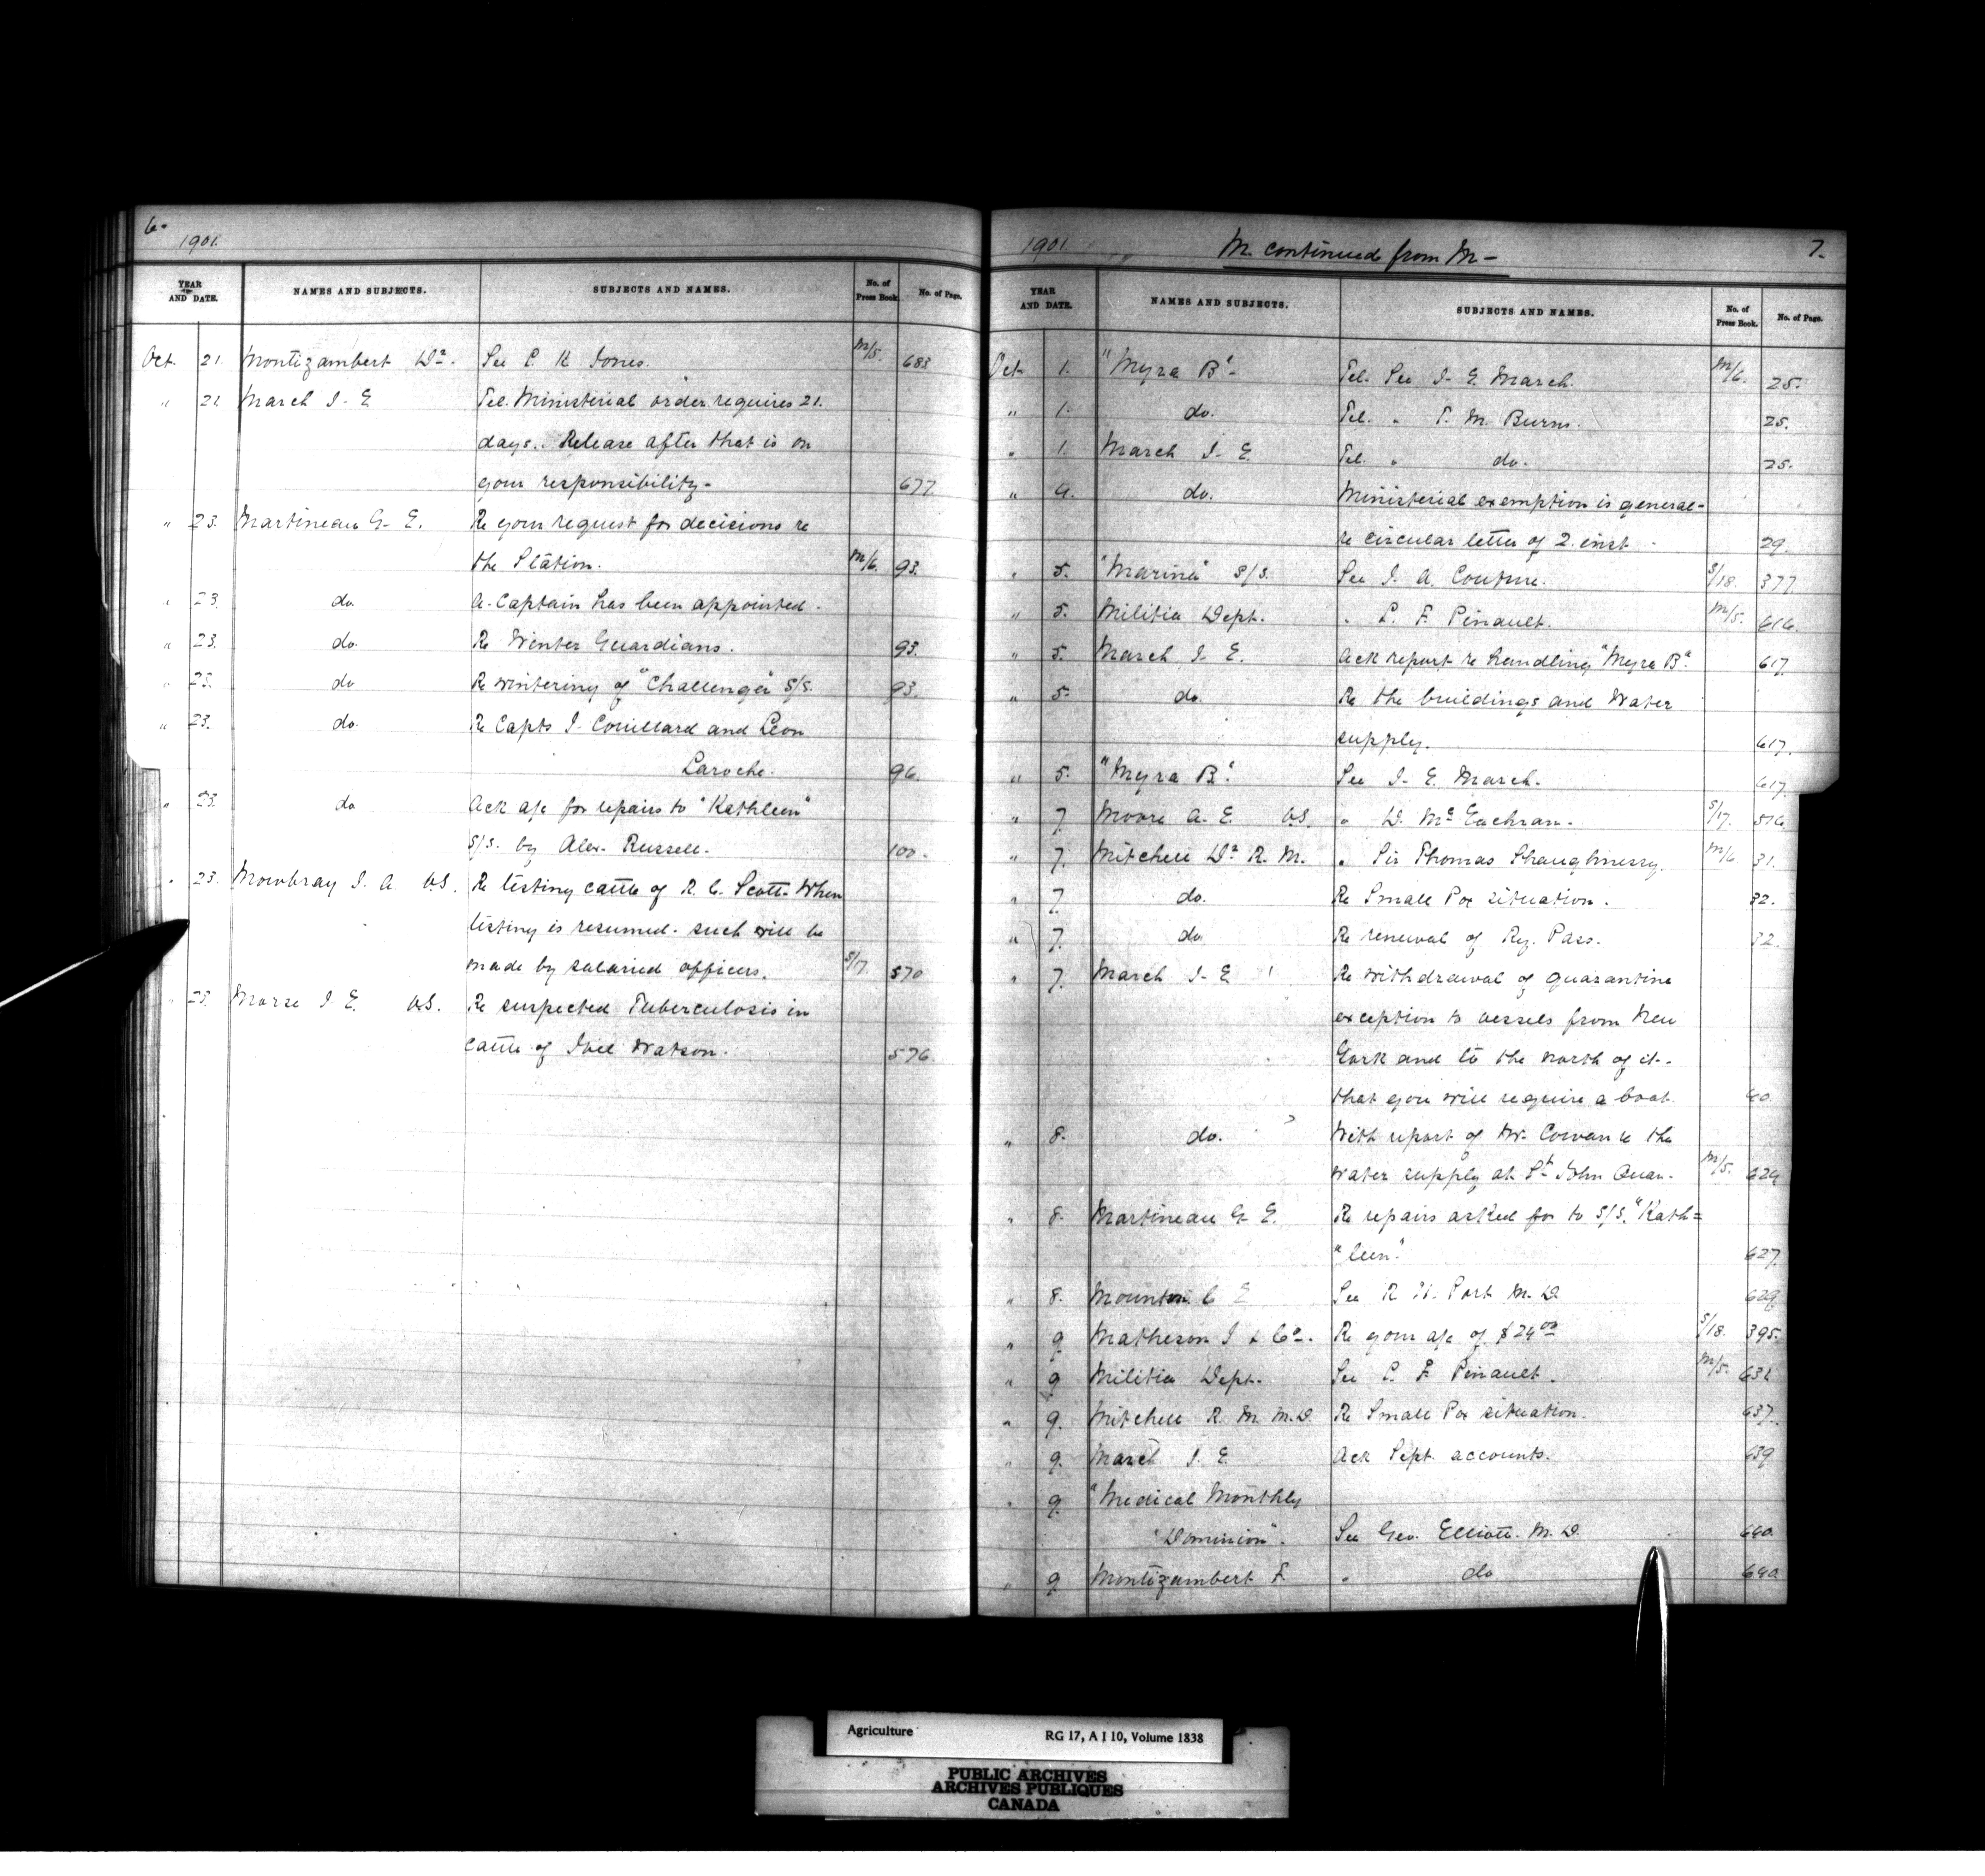 6.
1901.
YEAR AND DATE. NAMES AND SUBJECTS. SUBJECTS AND NAMES. No. of Press Book. No. of Page.
Oct. 21. Montizambert Dr. See C. K. Jones. M/5. 683
" 21. March J. E. Tel. Ministerial order requires 21.
days. Release after that is on
your responsibility- 677
" 23. Martineau G. E. Re your request for decisions re
the Station. M/6. 93.
" 23. do. A. Captain has been appointed.
" 23. do. Re Winter Guardians. 93.
" 23. do Re wintering of "Challenger" S/S. 93.
" 23. do. Re Capts J. Couillard and Leon
Laroche. 96.
" 23. do Ack a/c for repairs to "Kathleen"
S/S. by Alex. Russell. 100.
" 23. Mowbray J. A. VS. Re testing cattle of R. C. Scott. When
testing is resumed. such will be
made by salaried officers. S/17. 570
" 25. Morse J. E. VS. Re suspected Tuberculosis in
cattle of Joel Watson. 576.
1901. M. continued from M- 7.
YEAR AND DATE. NAMES AND SUBJECTS. SUBJECTS AND NAMES. No. of Press Book. No. of Page.
Oct. 1. "Myra B". Tel. See J. E. March. M/6. 25.
" 1. do. Tel. " T. M. Burns. 25.
" 1. March J. E. Tel. " do. 25.
" 4. do. Ministerial exemption is general-
re circular letter of 2. inst. 29.
" 5. "Marina" S/S. See J. A. Couture. S/18. 377.
" 5. Militia Dept. " L. F. Pinault. M/5. 616.
" 5. March J. E. Ack report re handling "Myra B". 617.
" 5. do. Re the buildings and Water
supply. 617.
" 5. "Myra B". See J. E. March. 617.
" 7. Moore A. E. VS. " D. McEachran. S/17. 516.
" 7. Mitchell Dr. R. M. " Sir Thomas Shaughnessy. M/6. 31.
" 7. do. Re Small Pox situation. 32.
" 7. do Re renewal of Ry. Pass. 32.
" 7. March J. E. Re withdrawal of quarantine
exception to vessels from New
York and to the north of it-
that you will require a boat. 40.
" 8. do. With report of Mr. Cowan re the
water supply at St. John Quan. M/5. 624
" 8. Martineau G. E. Re repairs asked for to S/S. "Kath=
"leen". 627.
" 8. Mounton C E See R. H. Port M. D. 629
" 9 Matheson J & Co. Re your a/c of $24.00 S/18. 395.
" 9 Militia Dept. See L. F. Pinault. M/5.
" 9. Mitchell R. M. M.D. Re Small Pox situation. 637.
" 9. March J. E. Ack Sept. accounts. 639
" 9. "Medical Monthly
"Dominion". See Geo. Elliott. M. D. 640.
" 9 Montizambert F. " do 640
Agriculture RG 17, A I 10, Volume 1838
PUBLIC ARCHIVES
ARCHIVES PUBLIQUES
CANADA